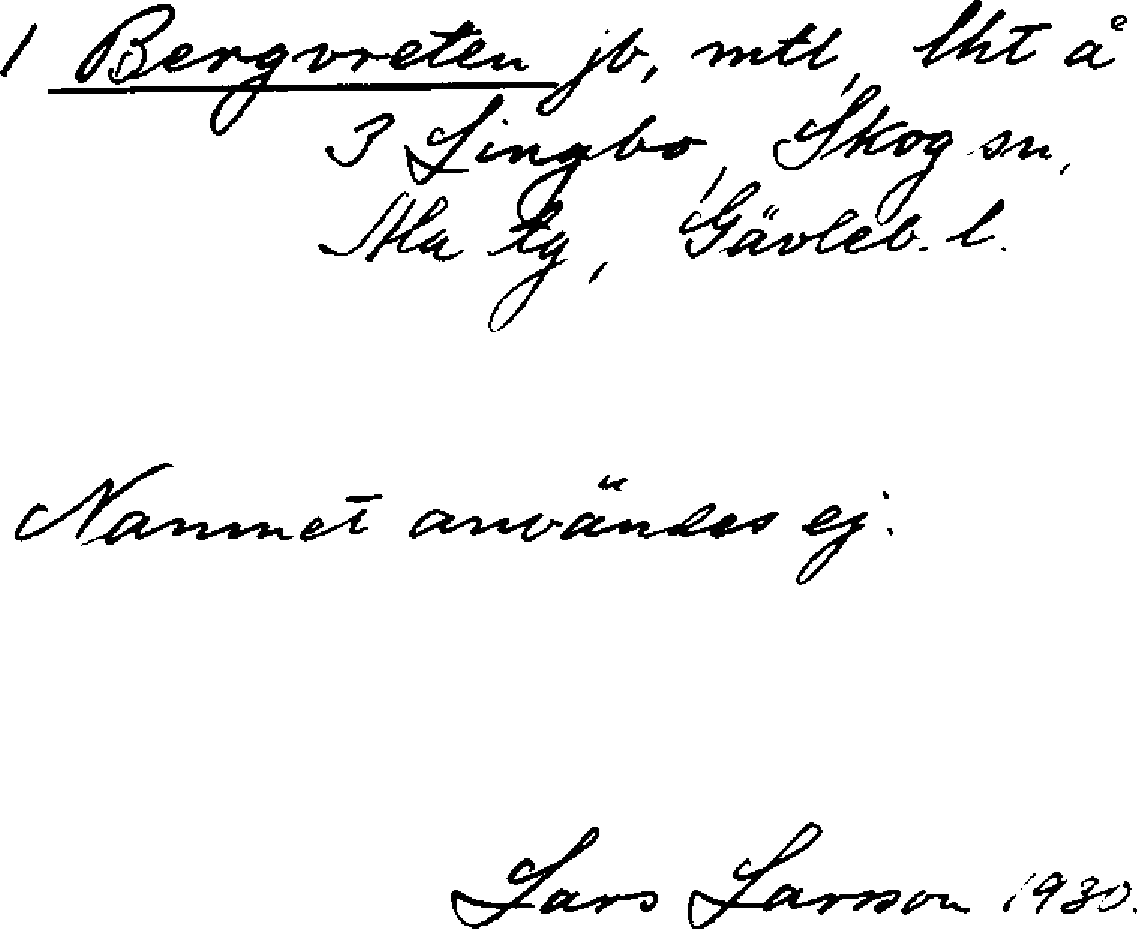 1 Bergvreten jb, mtl, lht å
3 Lingbo, Skog sn,
Ala tg, Gävleb. l.
Namnet användes ej.
Lars Larsson 1930.